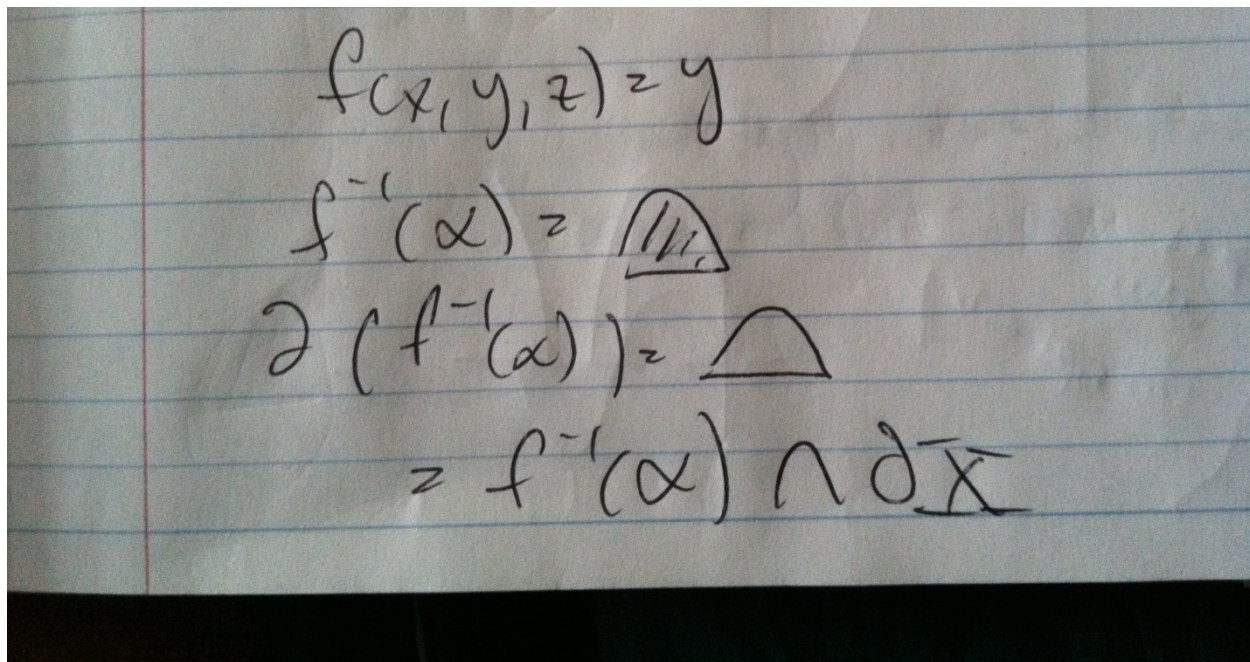 f(x, y, z) = y
f⁻¹(α) =
∂(f⁻¹(α)) =
= f⁻¹(α) ∩ ∂X